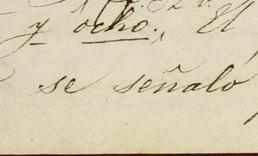 y ocho. El
se señalo